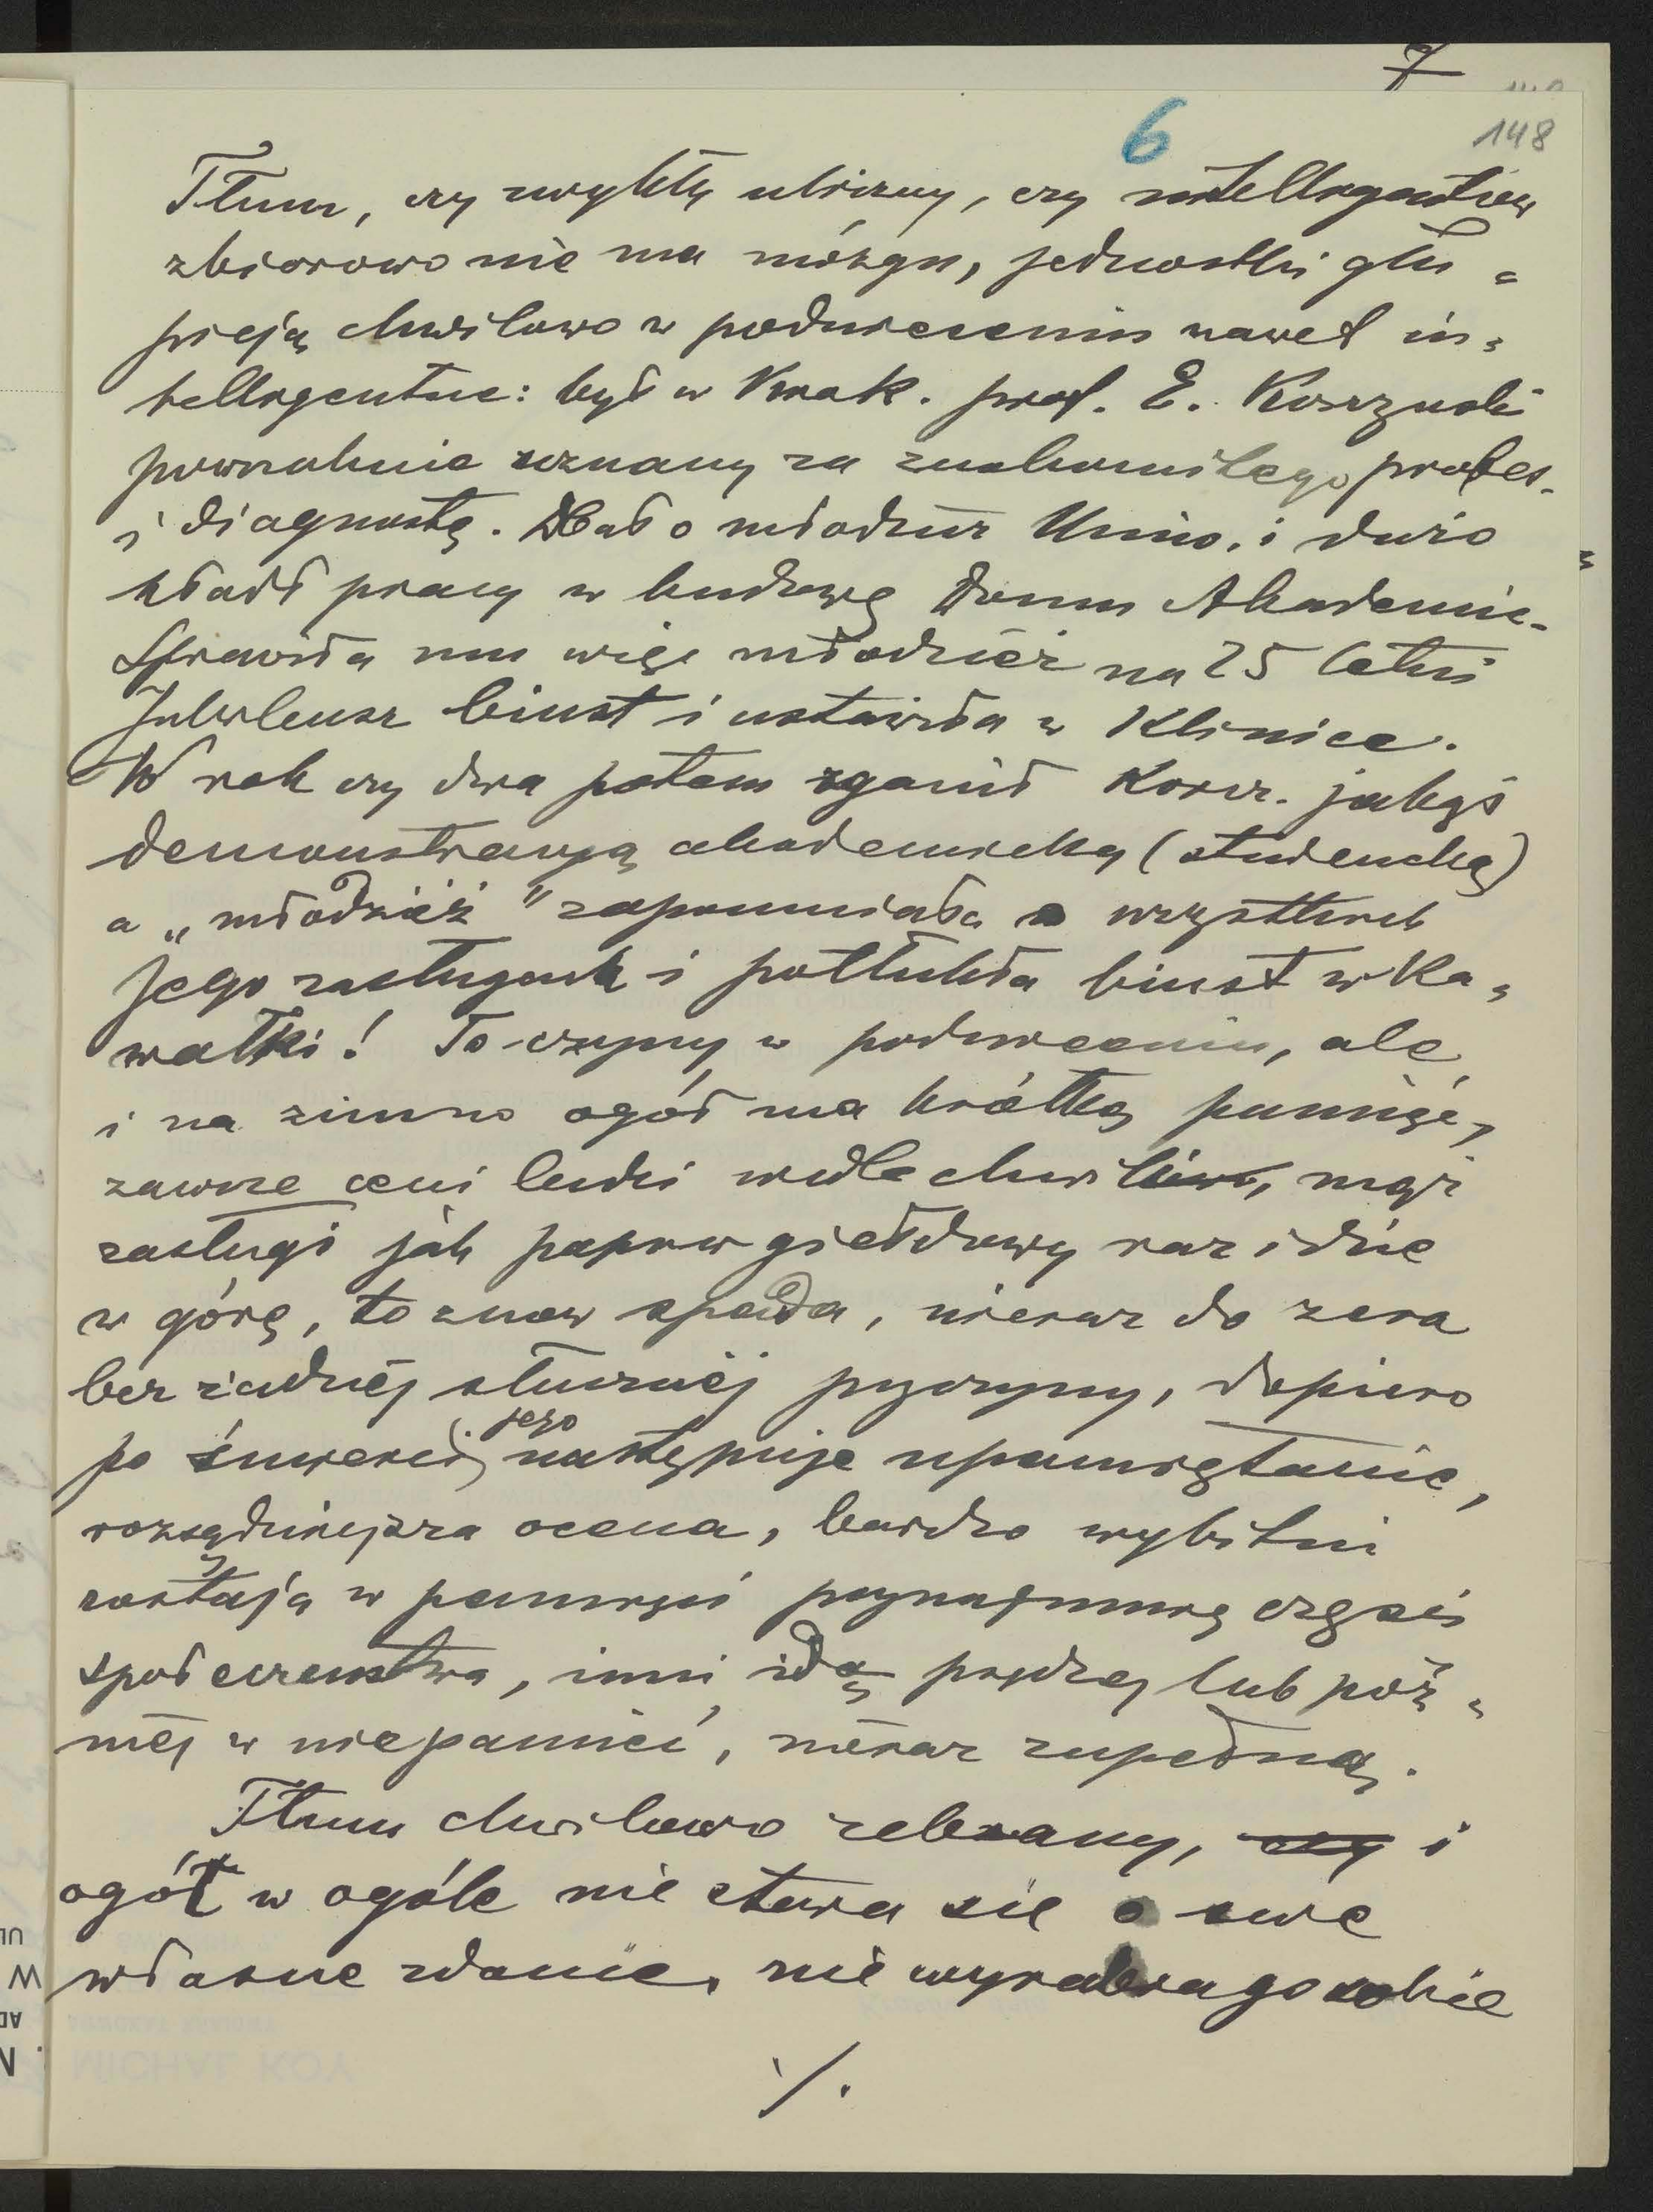 7
6
148
Tłum, czy zwykły uliczny, czy intelligentny
zbiorowo nie ma mózgu, jednostki głu=
pieją chwilowo w podnieceniu nawet in=
telligentne: był w Krak. prof. E. Korczyński
powszechnie uznany za znakomitego profes.
i diagnostę. Dbał o młodzież Uniw. i dużo
kładł pracy w budowę Domu Akademic.
Sprawiła mu więc młodzież na 25 letni
Jubileusz biust i ustawiła w Klinice.
W rok czy dwa potem zganił Korcz. jakąś
demonstrację akademicką (studencką)
a „młodzież" zapomniała o wszystkich
jego zasługach i potłukła biust w ka=
wałki! To czyny w podnieceniu, ale
i na zimno ogół ma krótką pamięć,
zawsze ceni ludzi wedle chwili, mąż
zasługi jak papier giełdowy raz idzie
w górę, to znów spada, nieraz do zera
bez żadnej słusznej przyczyny, dopiero
po śmierci jego następuje upamiętanie,
rozsądniejsza ocena, bardzo wybitni
zostają w pamięci przynajmniej części
społeczeństwa, inni idą prędzej lub póź=
niej w niepamięć, nieraz zupełną.
Tłum chwilowo zebrany, czy i
ogół w ogóle nie stara się o swe
własne zdanie, nie wyrabia go sobie
./.
MICHAŁ ROY